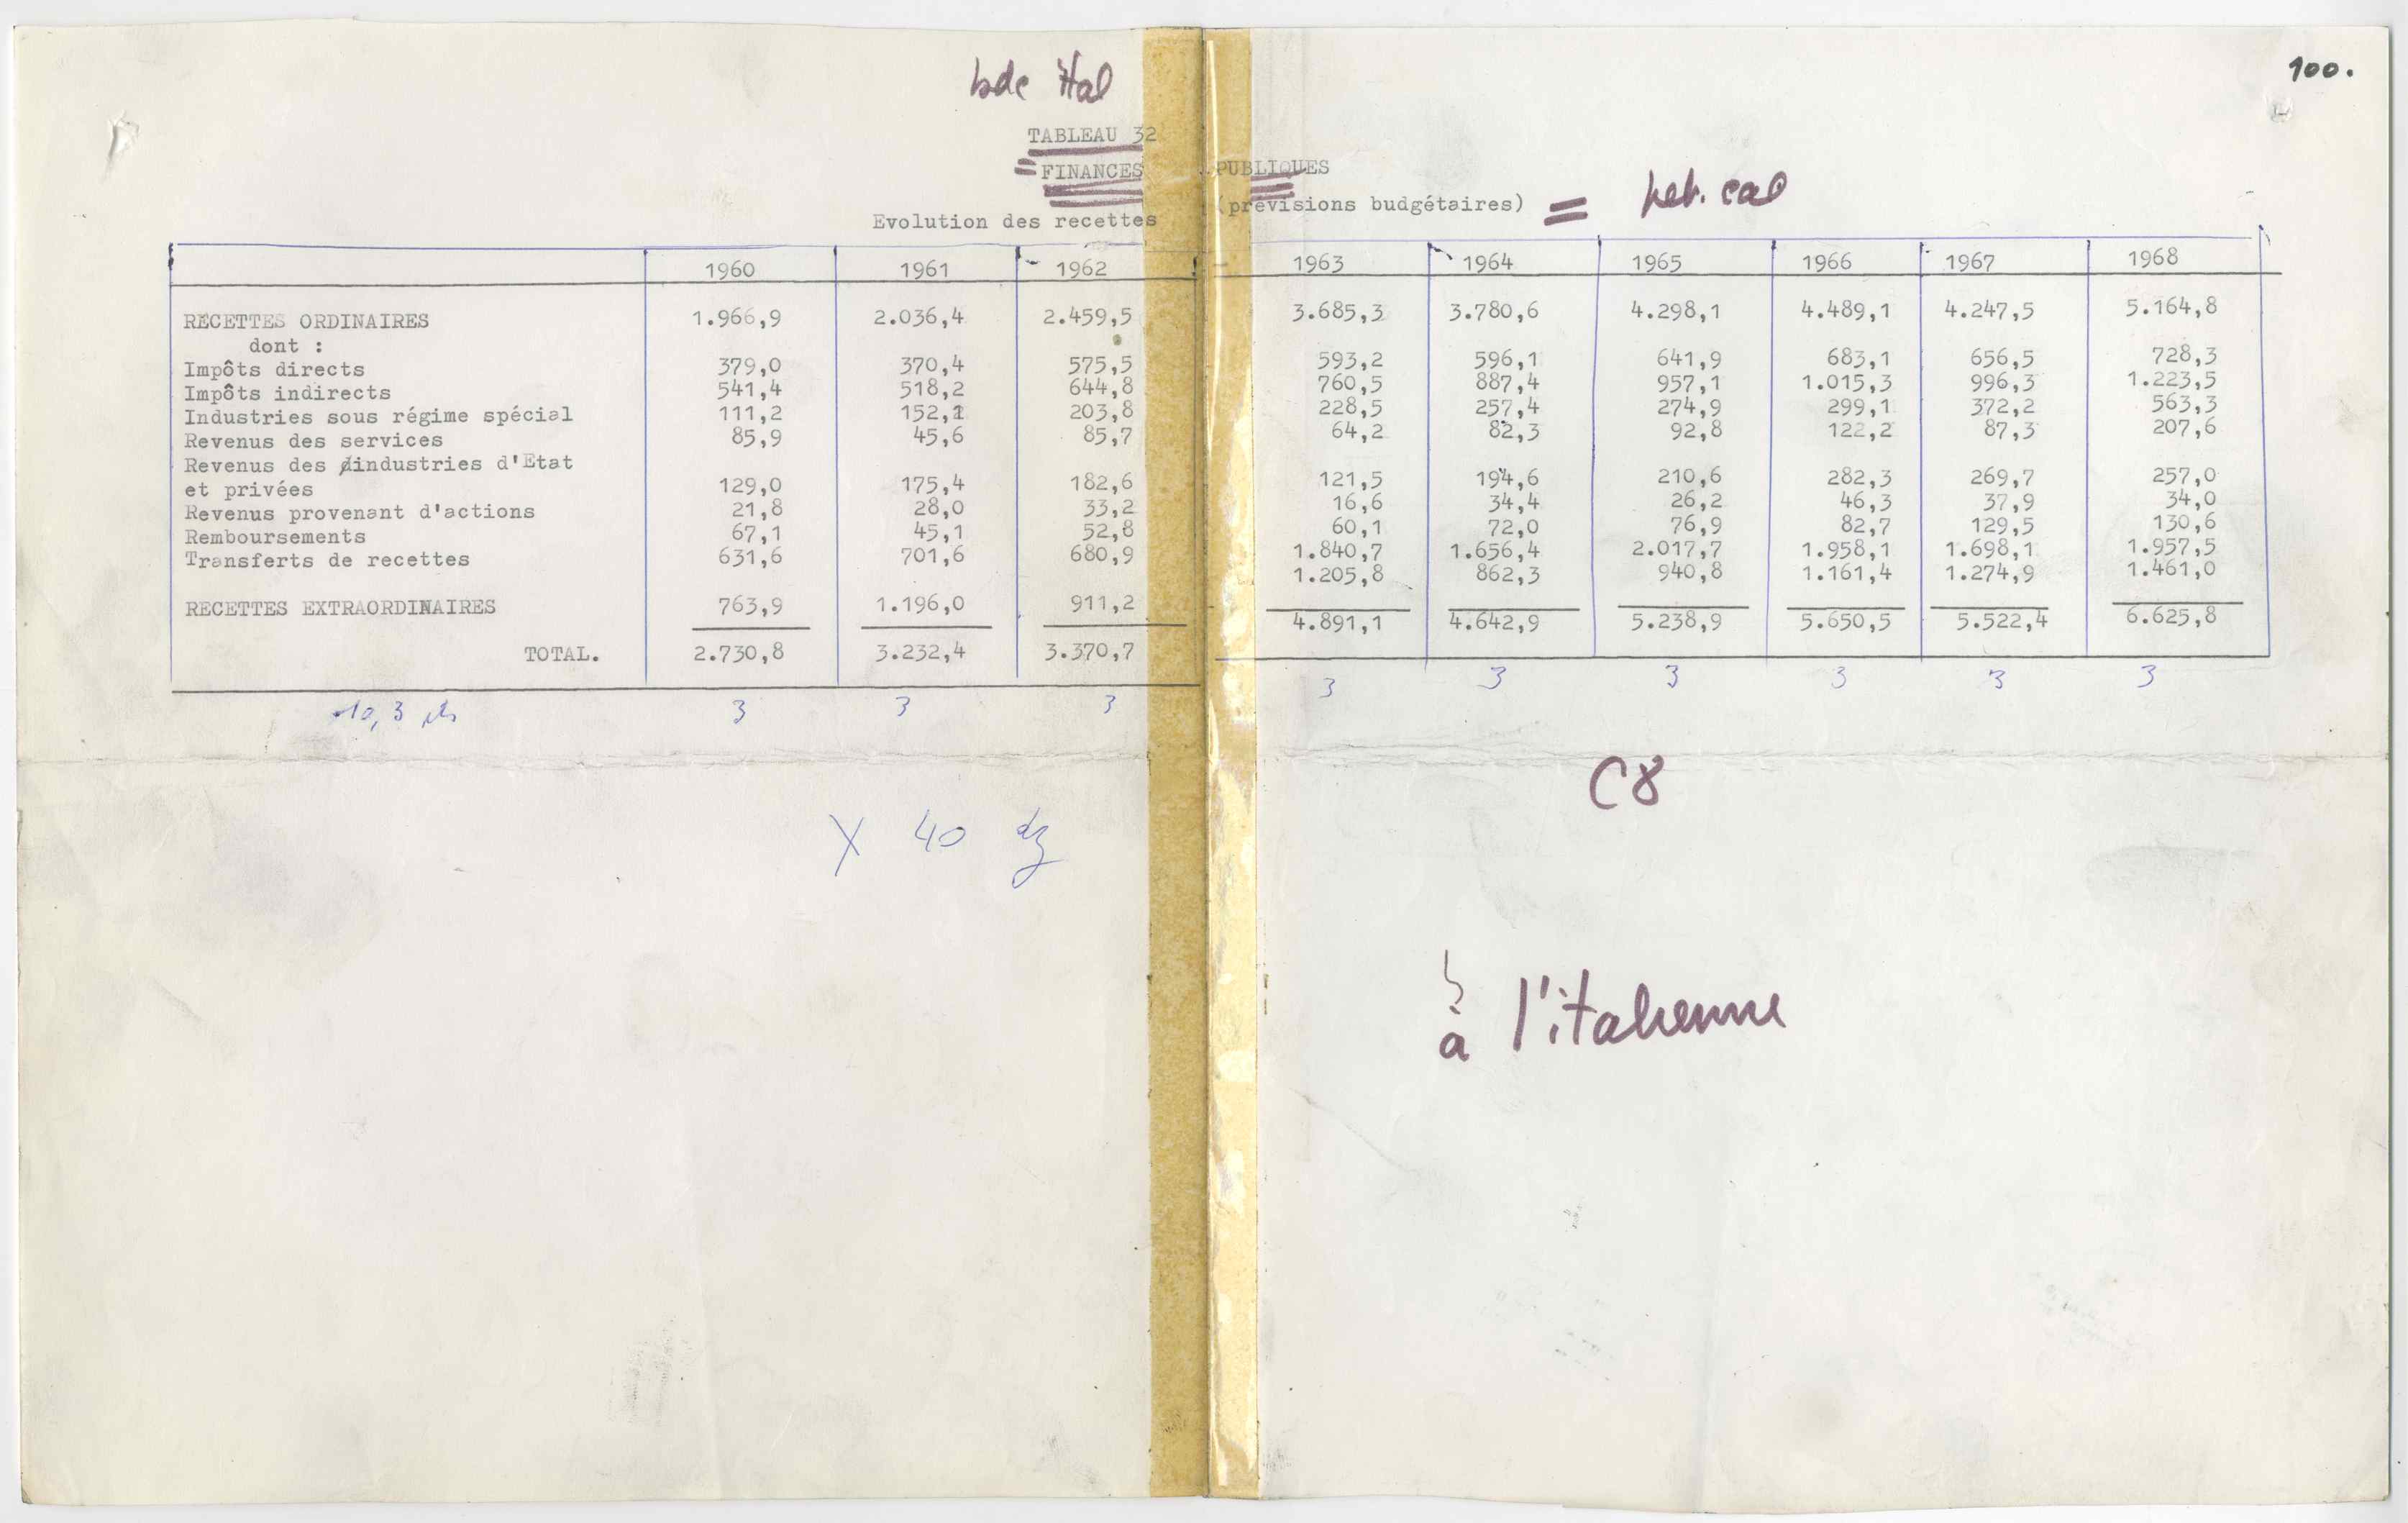 100.
bde ital
TABLEAU 32
FINANCES PUBLIQUES
Evolution des recettes (prévisions budgétaires) =
1960 1961 1962 1963 1964 1965 1966 1967 1968
RECETTES ORDINAIRES 1.966,9 2.036,4 2.459,5 3.685,3 3.780,6 4.298,1 4.489,1 4.247,5 5.164,8
dont :
Impôts directs 379,0 370,4 575,5 593,2 596,1 641,9 683,1 656,5 728,3
Impôts indirects 541,4 518,2 644,8 760,5 887,4 957,1 1.015,3 996,3 1.223,5
Industries sous régime spécial 111,2 152,1 203,8 228,5 257,4 274,9 299,1 372,2 563,3
Revenus des services 85,9 45,6 85,7 64,2 82,3 92,8 122,2 87,3 207,6
Revenus des industries d'Etat
et privées 129,0 175,4 182,6 121,5 194,6 210,6 282,3 269,7 257,0
Revenus provenant d'actions 21,8 28,0 33,2 16,6 34,4 26,2 46,3 37,9 34,0
Remboursements 67,1 45,1 52,8 60,1 72,0 76,9 82,7 129,5 130,6
Transferts de recettes 631,6 701,6 680,9 1.840,7 1.656,4 2.017,7 1.958,1 1.698,1 1.957,5
RECETTES EXTRAORDINAIRES 763,9 1.196,0 911,2 1.205,8 862,3 940,8 1.161,4 1.274,9 1.461,0
TOTAL. 2.730,8 3.232,4 3.370,7 4.891,1 4.642,9 5.238,9 5.650,5 5.522,4 6.625,8
10,3 3 3 3 3 3 3 3 3 3
C8
X 40 dz
à l'italienne